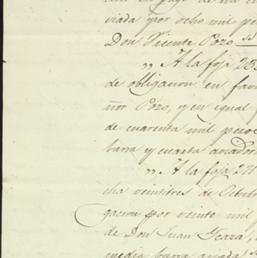 viada por ocho mil pe
Don Vicente Pozo
" A la foja 23
de obligacion en fav
ñor Pozo, y en igual f
de cuarenta mil pesos
barra y cuarta
" A la foja 211
cha veintitres de Octub
gacion por veinte mil
de Don Juan Ycaza,
media barra aviada